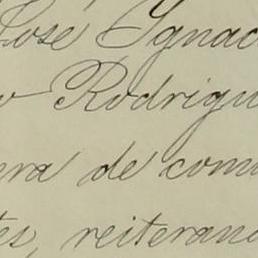 José Ignac
o Rodrigu
era de comi
tes, reiteran